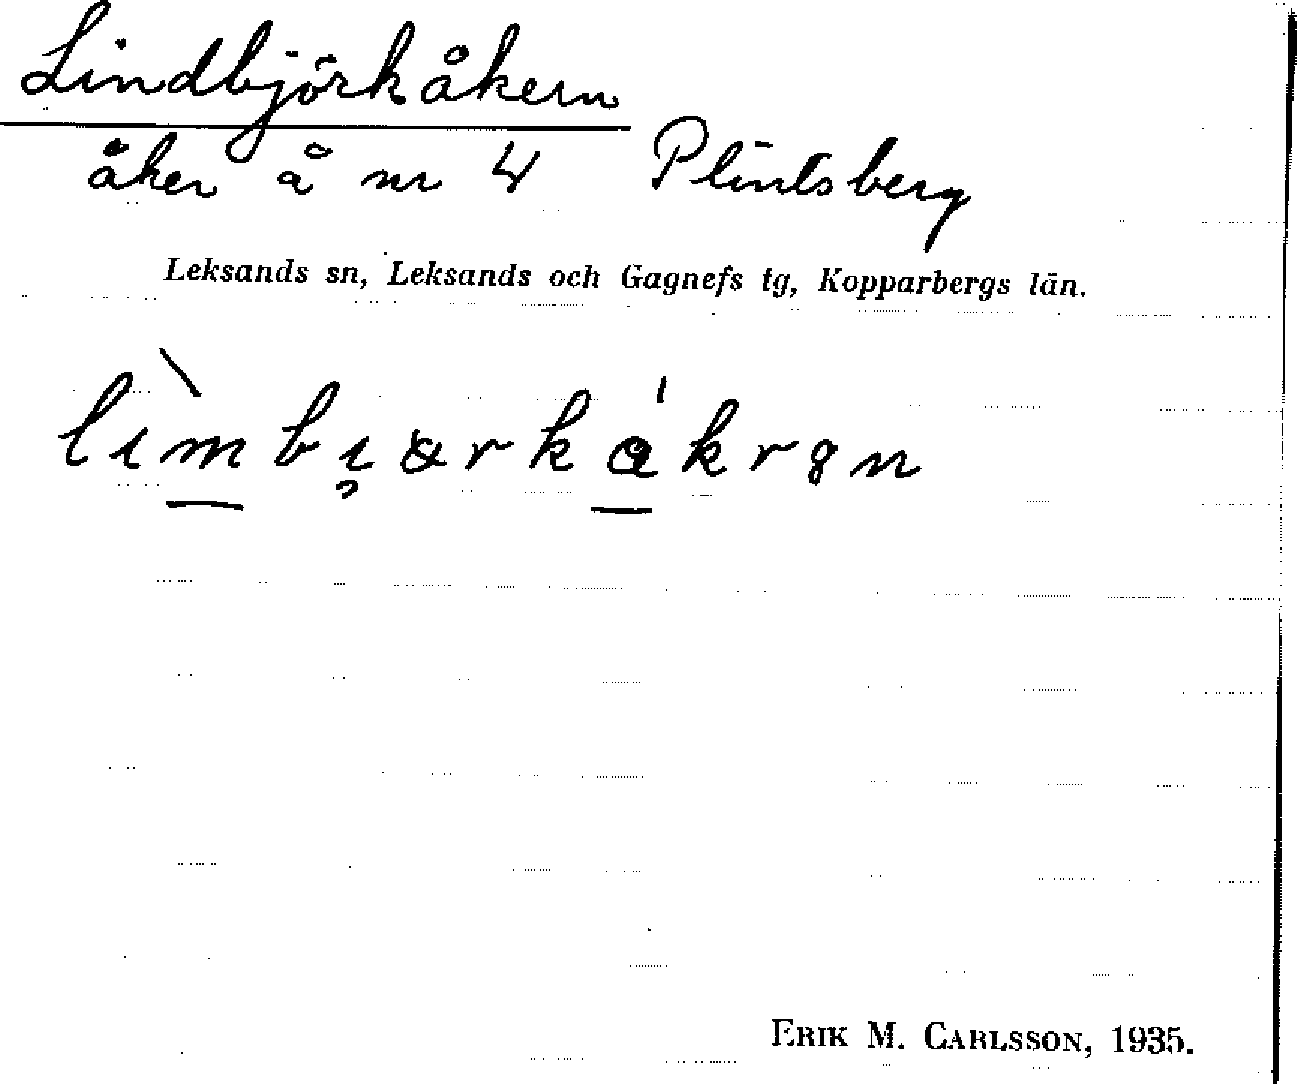 Lindbjörkåkern
åker å nr 4 Plintsberg
Leksands sn, Leksands och Gagnefs tg, Kopparbergs län.
ERIK M. CARLSSON, 1935.